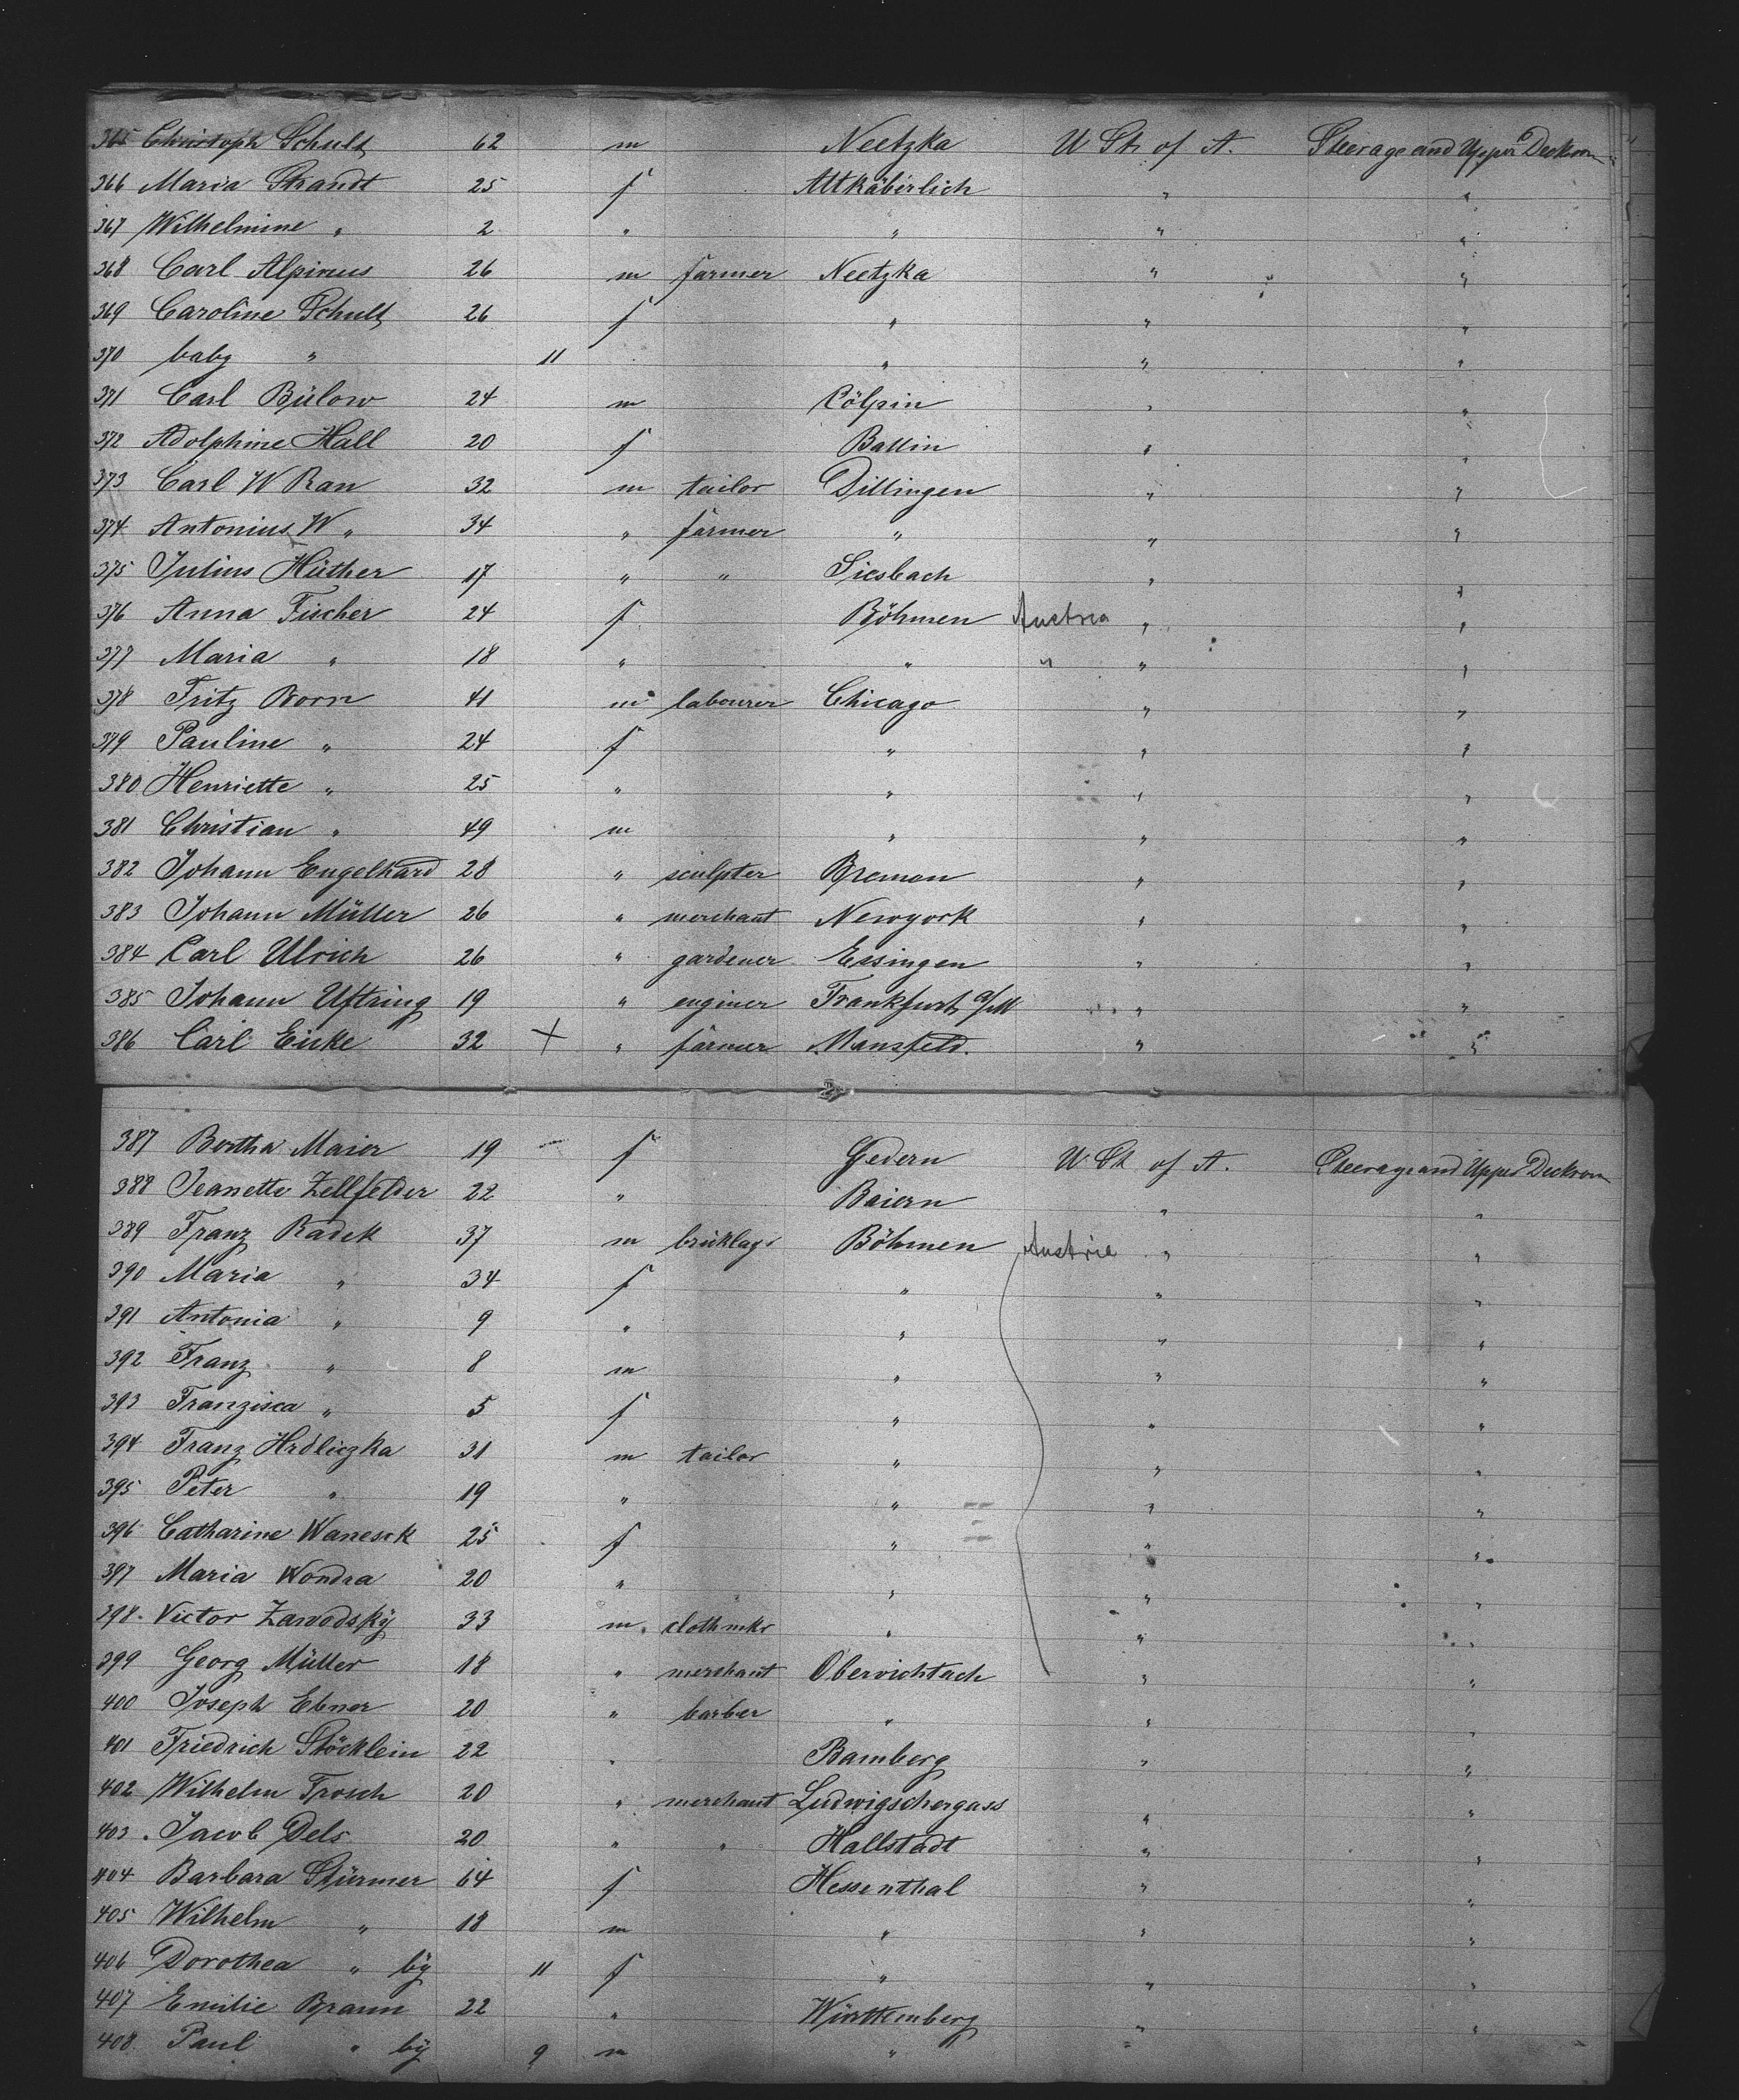 365 Christoph Schult 62 m Neetzka U St. of A. Steerage and Upper Deckroom
366 Maria Strandt 25 f Altkäbelich " "
367 Wilhelmine " 2 " " " "
368 Carl Alpinus 26 m farmer Neetzka " "
369 Caroline Schult 26 f " " "
370 baby " 11 " " "
371 Carl Bülow 24 m Cölpin " "
372 Adolphine Hall 20 f Ballin " "
373 Carl W Rau 32 m tailor Dillingen " "
374 Antonius W " 34 " farmer " " "
375 Julius Hüther 17 " " Siesbach " "
376 Anna Fischer 24 f Böhmen Austria " "
377 Maria " 18 " " " " "
378 Fritz Born 41 m labourer Chicago " "
379 Pauline " 24 f " " "
380 Henriette " 25 " " " "
381 Christian " 49 m " " "
382 Johann Engelhard 28 " sculpter Bremen " "
383 Johann Müller 26 " merchant Newyork " "
384 Carl Ulrich 26 " gardener Essingen " "
385 Johann Uftring 19 " enginer Frankfurt a/M " "
386 Carl Eicke 32 X " farmer Mansfeld. " "
387 Bertha Maier 19 f Gedern U St. of A. Steerage and Upper Deckroom
388 Jeanette Zellfelder 22 " Baiern " "
389 Franz Radek 37 m bricklayr Böhmen Austria " "
390 Maria " 34 f " " "
391 Antonia " 9 " " " "
392 Franz " 8 m " " "
393 Franzisca " 5 f " " "
394 Franz Hrdliczka 31 m tailor " " "
395 Peter " 19 " " " "
396 Catharine Wanesek 25 f " " "
397 Maria Wondra 20 " " " "
398 Victor Zawodsky 33 m clothmkr " " "
399 Georg Müller 18 " merchant Obervichtach " "
400 Joseph Ebner 20 " barber " " "
401 Friedrich Stöcklein 22 " Bamberg " "
402 Wilhelm Frosch 20 " merchant Ludwigschorgass " "
403 Jacob Dels 20 " " Hallstadt " "
404 Barbara Stürmer 64 f Hessenthal " "
405 Wilhelm " 18 m " " "
406 Dorothea " by 11 f " " "
407 Emilie Braun 22 " Württemberg " "
408 Paul " by 9 m " "